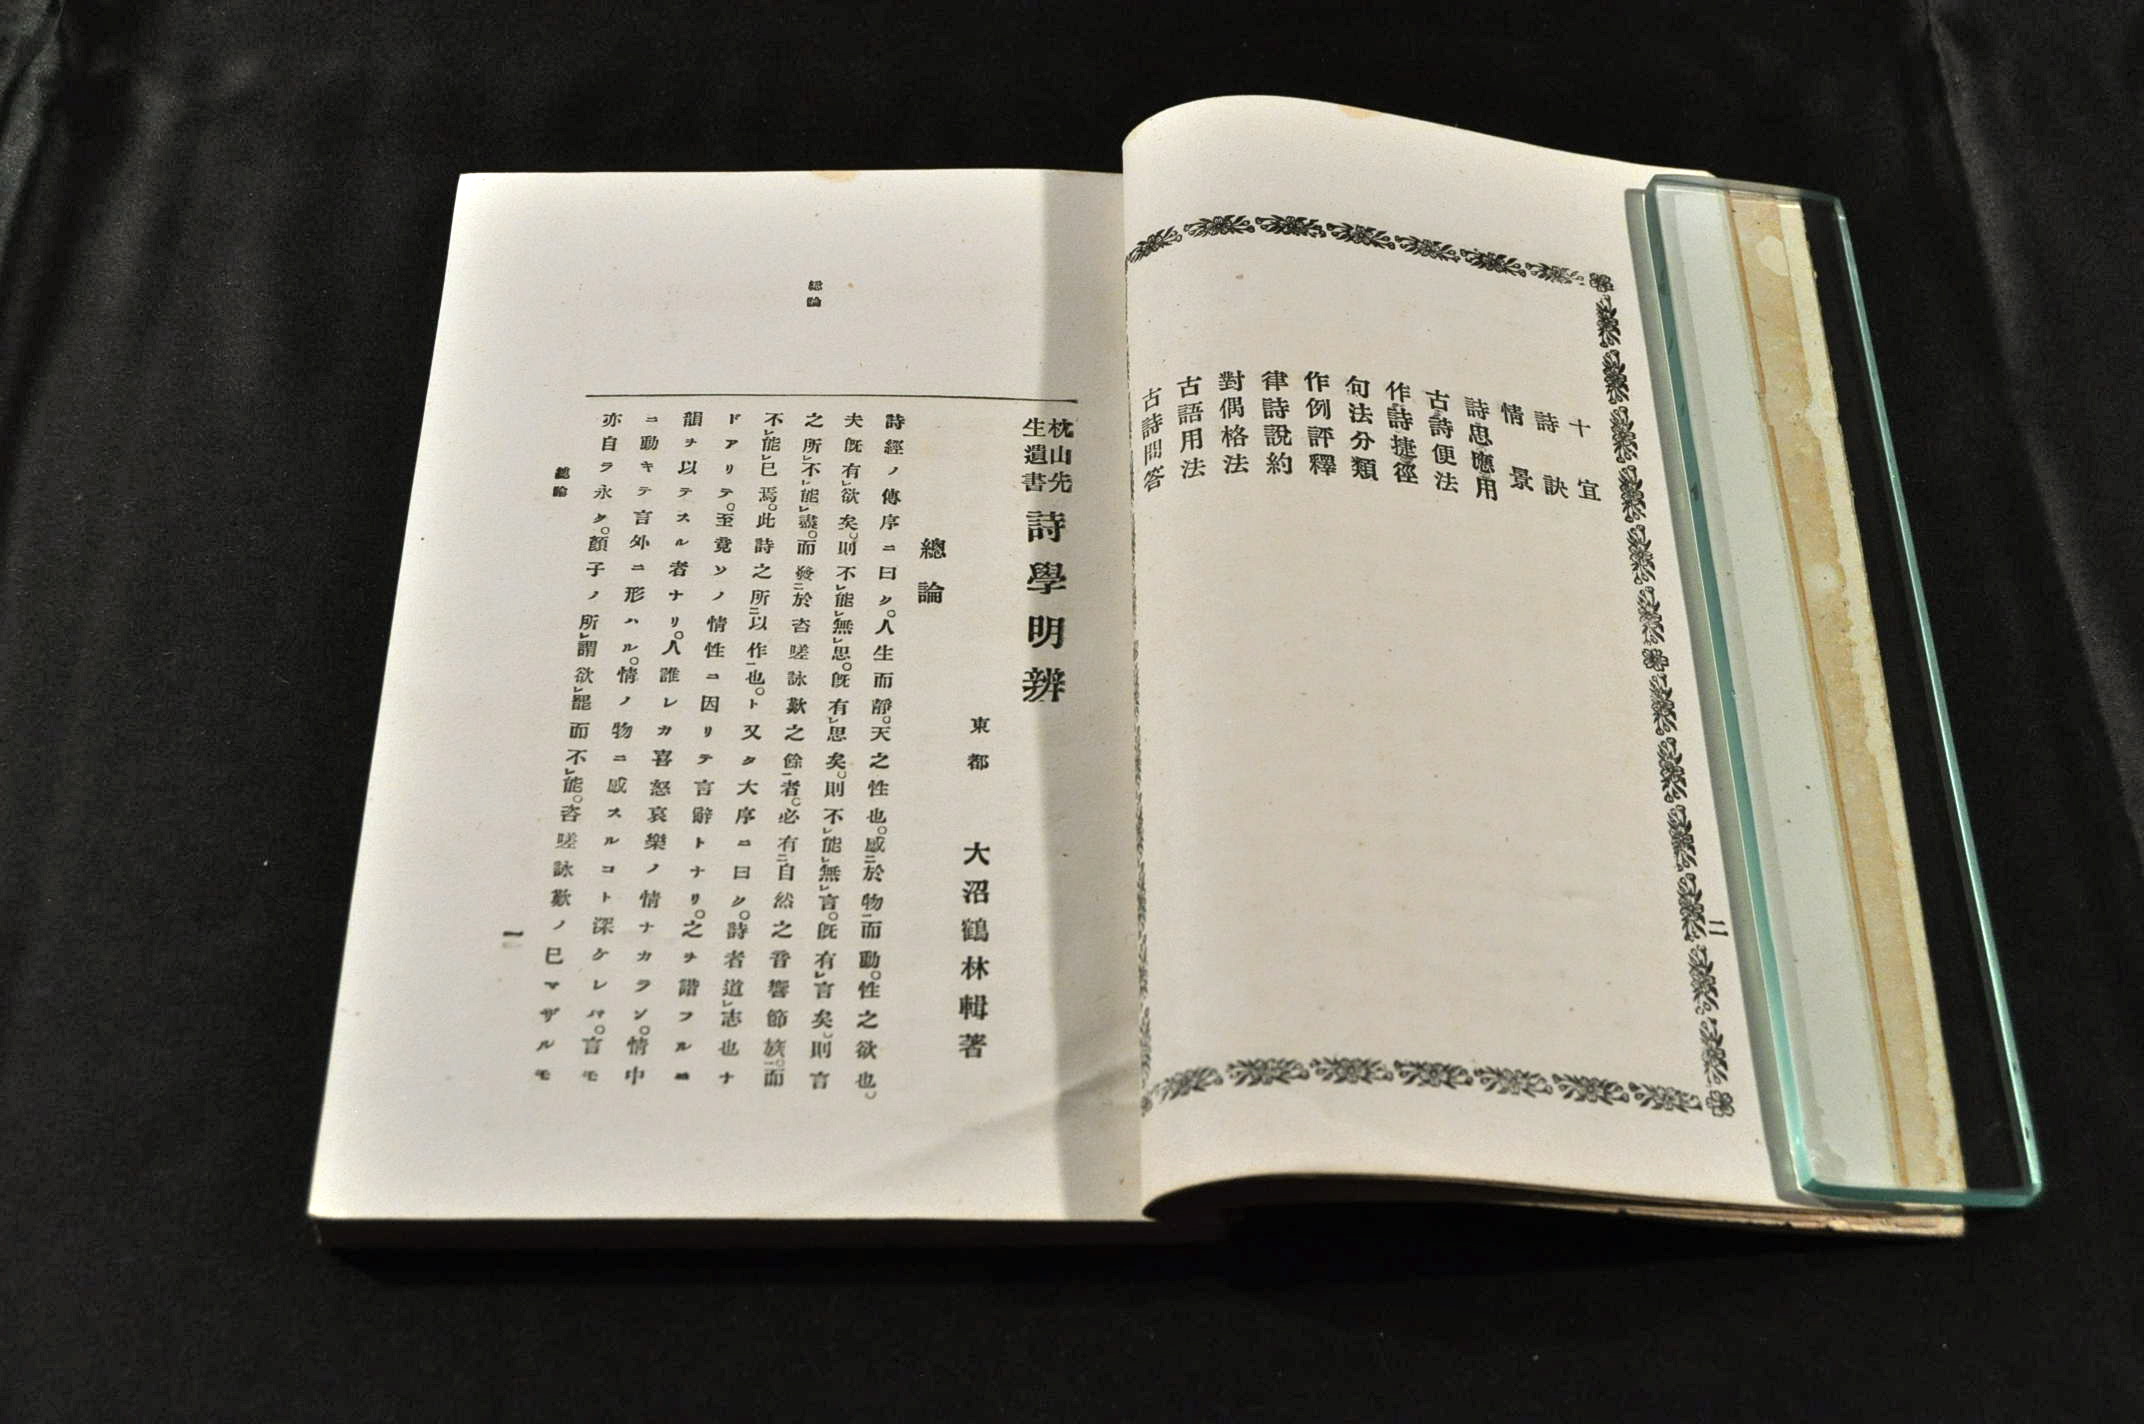 十宜
詩訣
情景
詩思應用
古詩便法
作詩捷徑
句法分類
作例評釋
律詩說約
對偶格法
古語用法
古詩問答
二
枕山先生遺書 詩學明辨
東都 大沼鶴林輯著
總論
詩經ノ傳序ニ曰ク。人生而靜。天之性也。感ニ於物一而動。性之欲也。
夫旣有レ欲矣。則不レ能レ無レ思。旣有レ思矣。則不レ能レ無レ言。旣有レ言矣。則言
之所レ不レ能レ盡。而發ニ於咨嗟詠歎之餘一者。必有ニ自然之音響節族一。而
不レ能レ已焉。此詩之所ニ以作一也。ト又タ大序ニ曰ク。詩者道レ志也ナ
ドアリテ。至竟ソノ情性ニ因リテ言辭トナリ。之ヲ諧フルニ
韻ヲ以テスル者ナリ。人誰レカ喜怒哀樂ノ情ナカラン。情中
ニ動キテ言外ニ形ハル。情ノ物ニ感スルコト深ケレバ。言モ
亦自ラ永ク。顏子ノ所レ謂欲レ罷而不レ能。咨嗟詠歎ノ已マザルモ
總論
總論
一